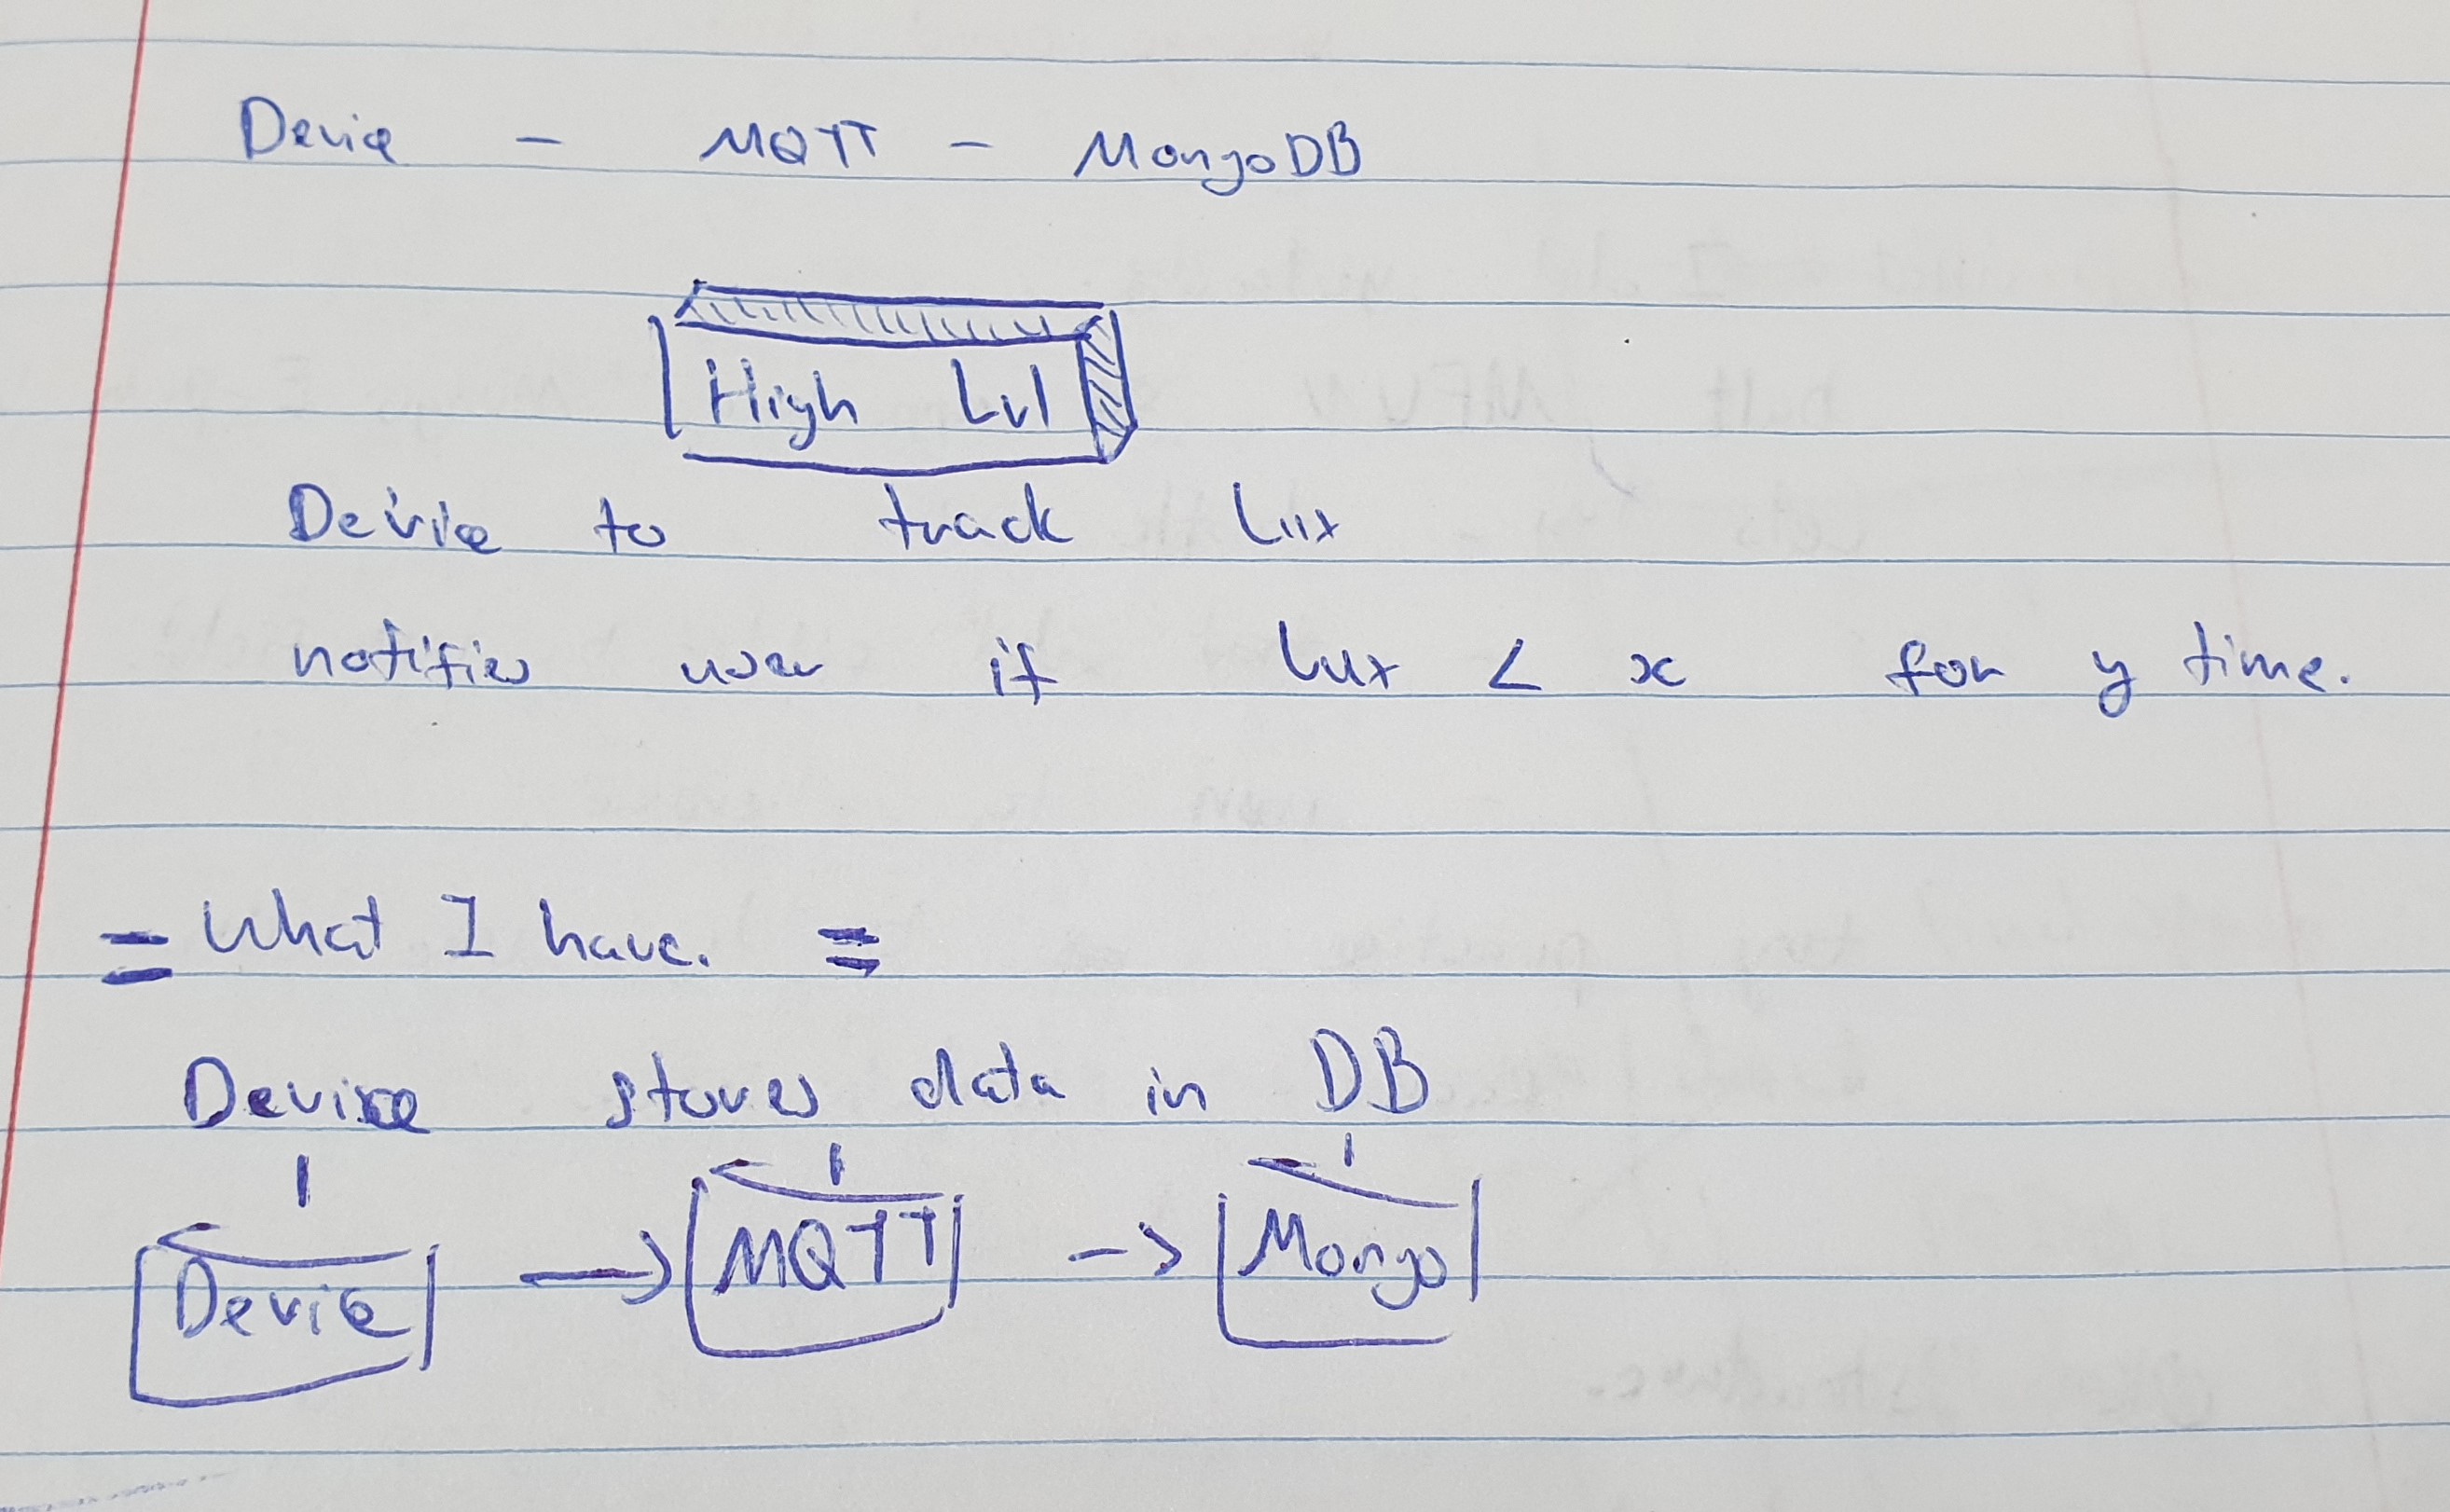 Device - MQTT - MongoDB
High Lvl
Device to track Lux
notifies user if Lux < x for y time.
= What I have. =
Device stores data in DB
Device -> MQTT -> Mongo